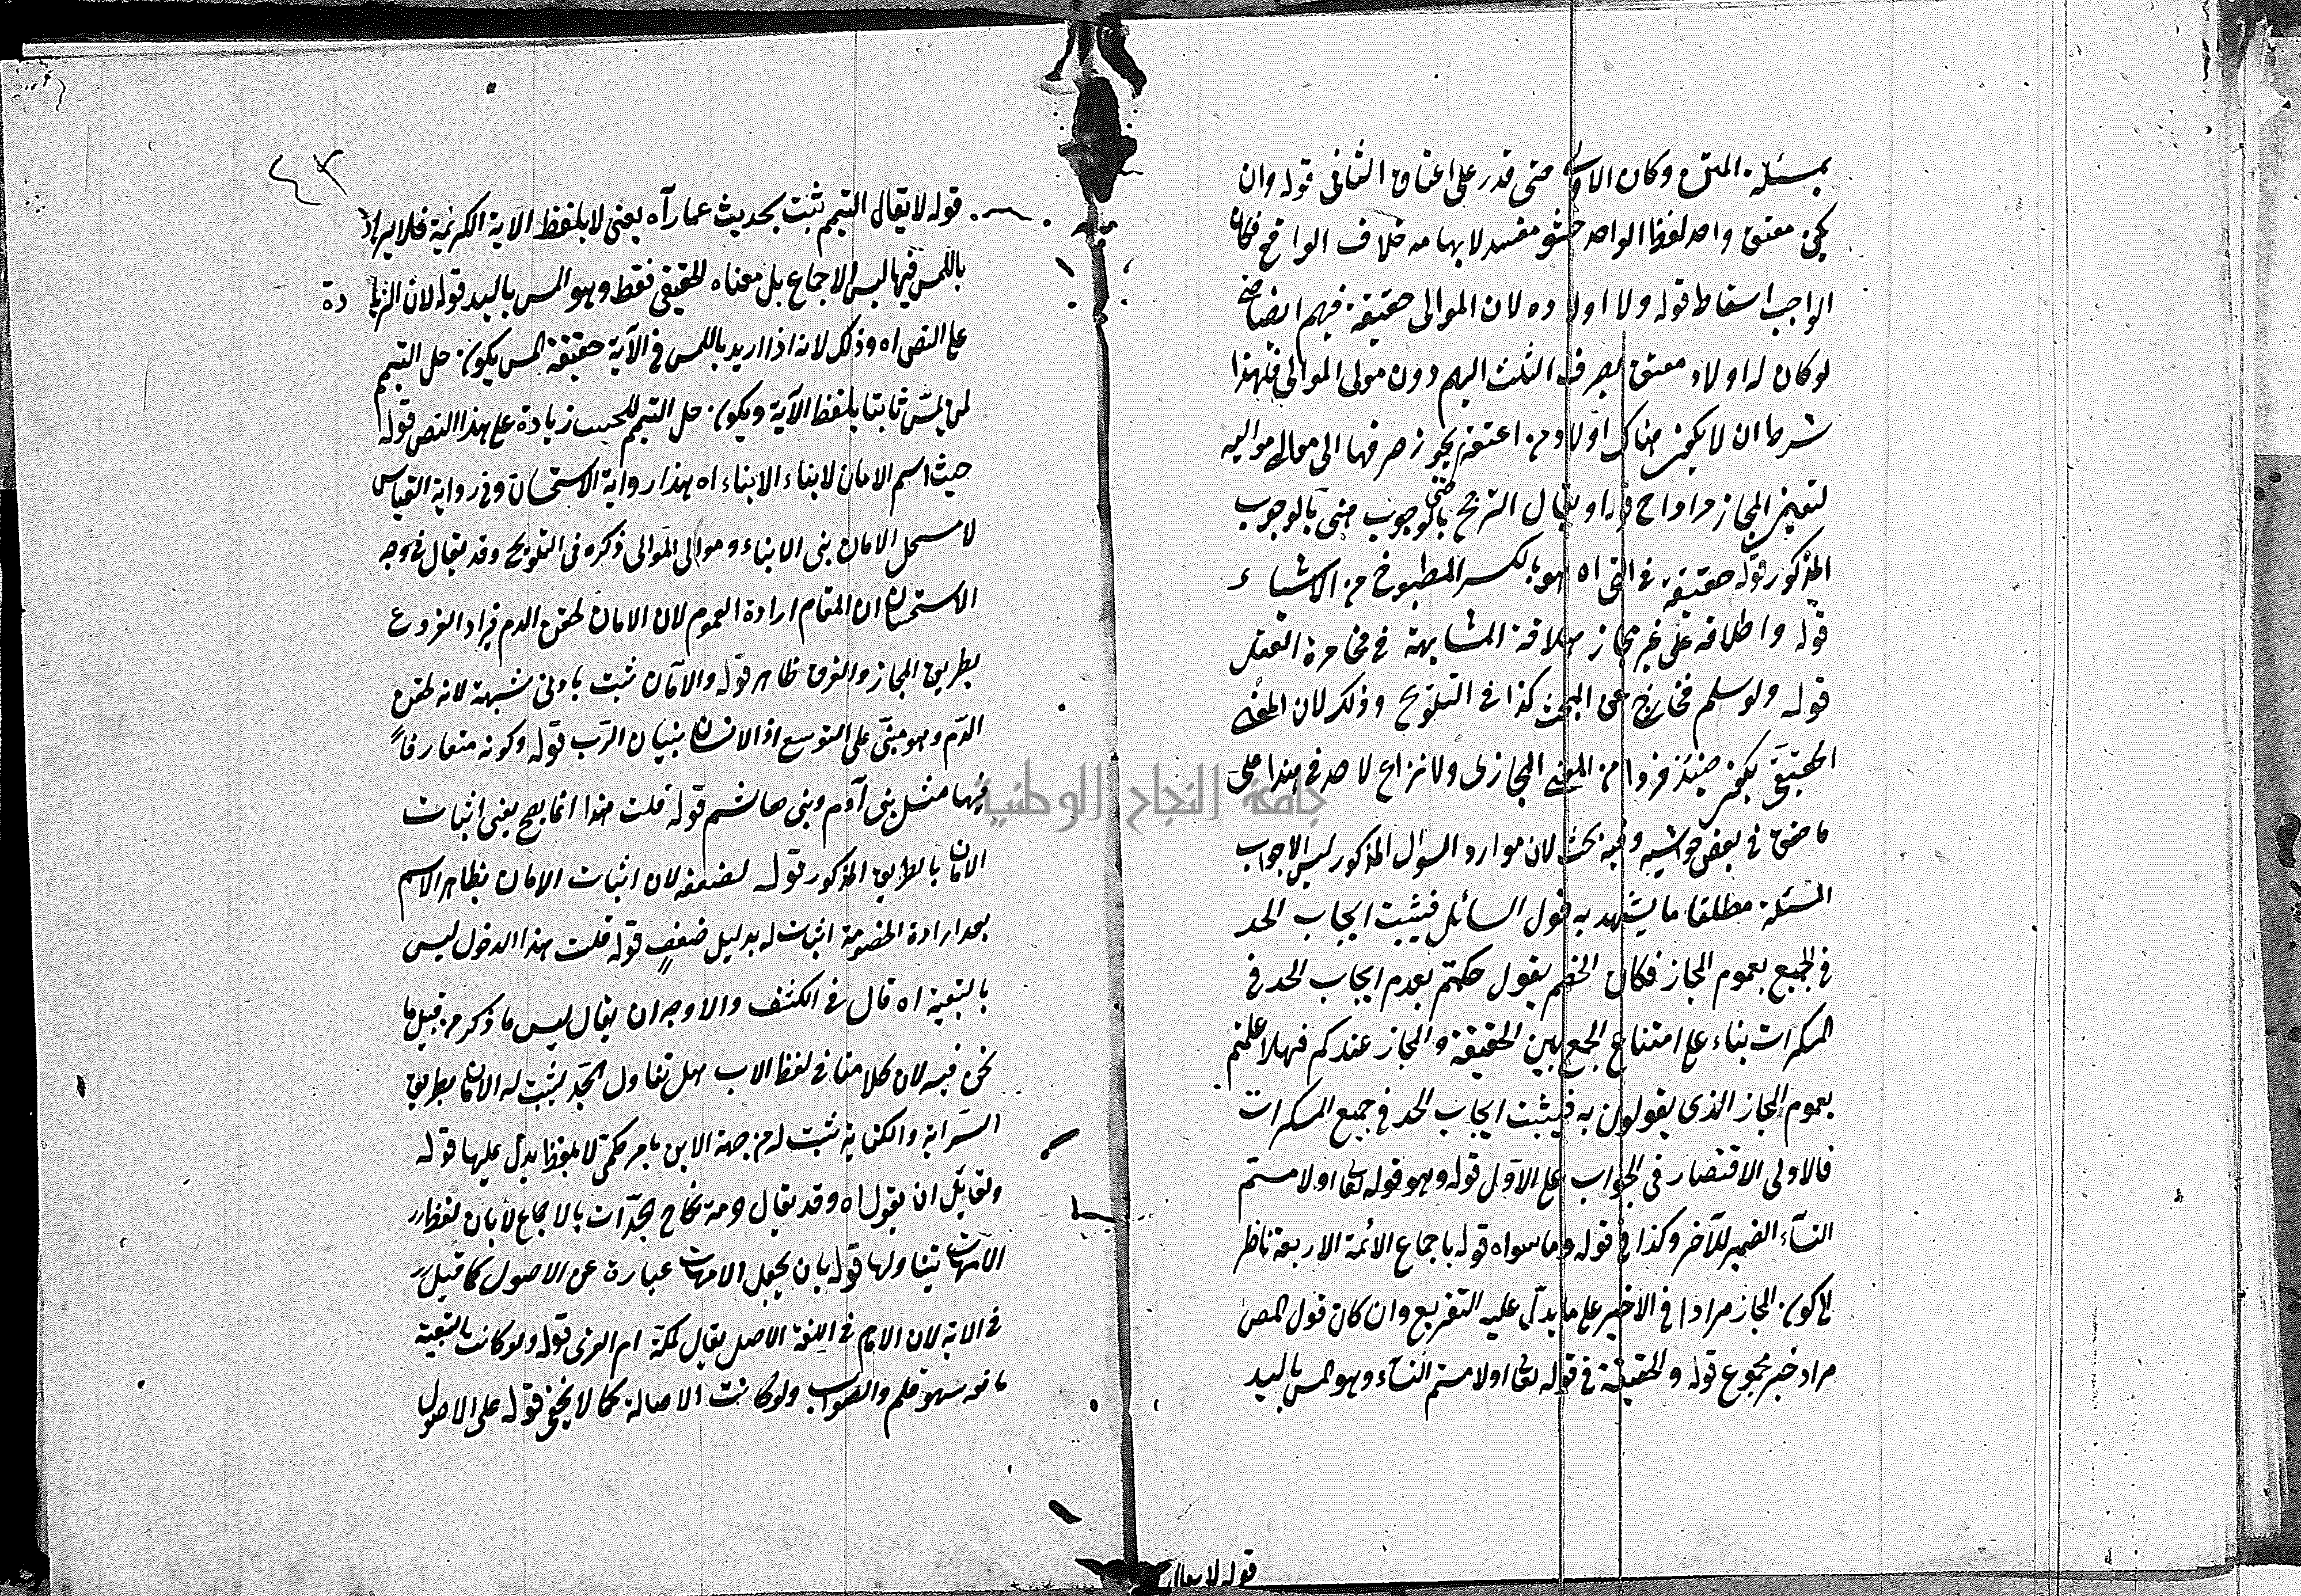 بمسئلة المتن وكان الاولى حتى قدر على اعتاق الثانى قوله وان
يكن معتق واحد لفظ الواحد حشو مفسد لابهامه خلاف الواقع فكان
الواجب اسقاطه قوله ولا اولاده لان الموالى حقيقة فيهم ايضا حتى
لو كان له اولاد معتق يصرف الثلث اليهم دون مولى الموالى فلهذا
شرط ان لا يكون هناك اولاد من اعتقهم يجوز صرفها الى موالى مواليه
لتعين المجاز مرادا ح قوله او يقال الترجيح بالوجوب حتى بالوجوب
المذكور قوله حقيقة فى النى اه هو بالكسر المطبوخ من الاشياء
قوله واطلاقه على غيره مجاز بعلاقة المشابهة فى مخامرة العقل
قوله ولو سلم فخارج عن المبحث كذا فى التلويح وذلك لان المعنى
الحقيقى يكون حينئذ فردا من المعنى المجازى ولا نزاع لاحد فى هذا على
ما حقق فى بعض حواشيه وفيه بحث لان موارد السؤال المذكور ليس الا جواب
المسئلة مطلقا ما يشهد به قول السائل فيثبت ايجاب الحد
فى الجميع بعموم المجاز فكان الخصم يقول حكمتم بعدم ايجاب الحد فى
المسكرات بناء على امتناع الجمع بين الحقيقة والمجاز عندكم فهلا علمتم
بعموم المجاز الذى يقولون به فيثبت ايجاب الحد فى جميع المسكرات
فالاولى الاقتصار فى الجواب على الاول قوله وهو قوله تعا او لامستم
النسآء الضمير للآخر وكذا فى قوله وما سواه قوله باجماع الائمة الاربعة ناظر
الى كون المجاز مرادا فى الاخير على ما يدل عليه التفريع وان كان قول المص
مراد خبر مجموع قوله والحقيقة فى قوله تعا او لامستم النسآء وهو المس باليد
قوله لا يقال
٤٣
قوله لا يقال التيمم ثبت بحديث عمار آه يعنى لا بلفظ الاية الكريمة فلا يراد
باللمس فيها ليس الا جماع بل معناه الحقيقى فقط وهو المس باليد قوله لان الزيادة
على النص اه وذلك لانه اذا اريد باللمس فى الآية حقيقة المس يكون حل التيمم
لمن يمس ثابتا بلفظ الآية ويكون حل التيمم للجنب زيادة على هذا النص قوله
حيث اسم الامان لابناء الابناء اه هذا رواية الاستحسان وفى رواية القياس
لا يشمل الامان بنى الابناء وموالى الموالى ذكره فى التلويح وقد يقال فى وجه
الاستحسان ان المقام ارادة العموم لان الامان لحقن الدم فيراد الفروع
بطريق المجاز والفرق ظاهر قوله والآمان ثبت بادنى شبهة لانه لحقن
الدم وهو مبنى على التوسع اذ الانسان بنيان الرب قوله وكونه متعارفا
فيها مثل بنى آدم وبنى هاشم قوله قلت هذا انما يصح يعنى اثبات
الامان بالطريق المذكور قوله لضعفه لان اثبات الامان بظاهر الاسم
بعد ارادة الخصومة اثبات له بدليل ضعف قوله قلت هذا الدخول ليس
بالتبعية اه قال فى الكشف والاوجه ان يقال ليس ما ذكر من قبيل ما
نحن فيه لان كلامنا فى لفظ الاب هل تناول الجد ليثبت له الامان بطريق
السراية والكناية ثبت له من جهة الابن بامر حكمى لا بلفظ يدل عليها قوله
ولقائل ان يقول اه وقد يقال حرمة نكاح الجدات بالاجماع لا بان لفظ
الامهات يتناولها قوله بان يجعل الامهات عبارة عن الاصول كما قيل
فى الاية لان الام فى اللغة الاصل يقال لمكة ام القرى قوله ولو كانت بالتبعية
سهو قلم والصواب ولو كانت الاصالة كما لا يخفى قوله على الاصول
جامعة النجاح الوطنية